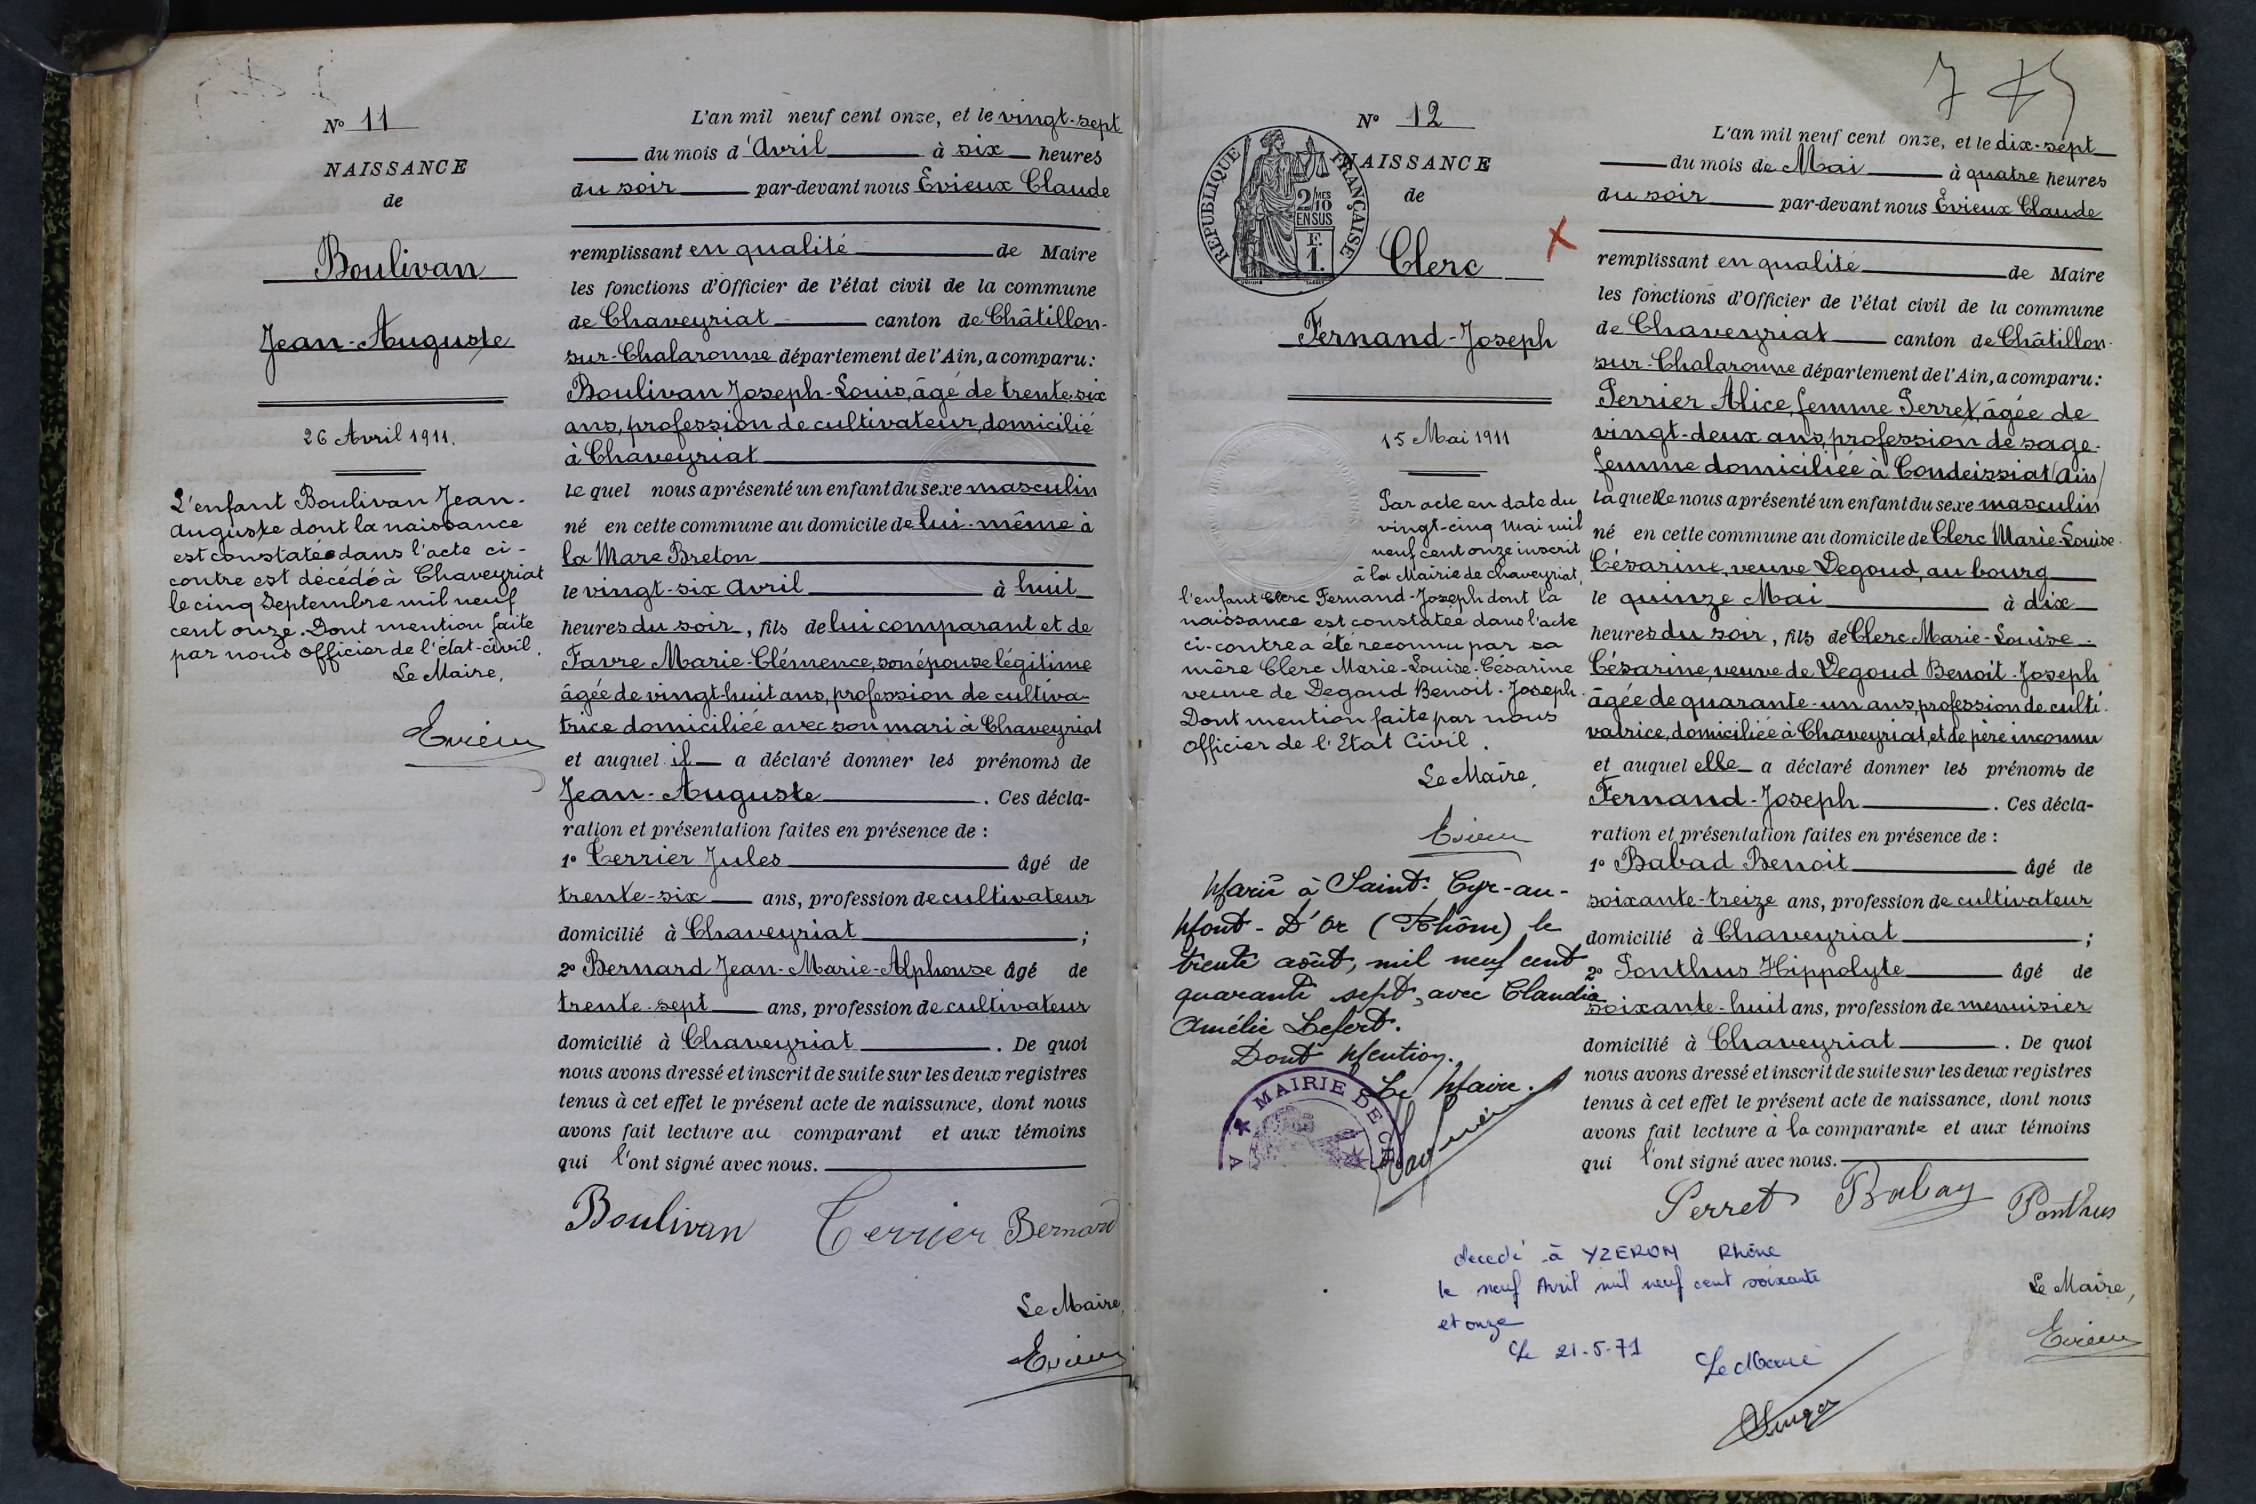 Nº 11
NAISSANCE
de
Boulivan
Jean-Auguste
26 Avril 1911.
L'enfant Boulivan Jean-
Auguste dont la naissance
est constatée dans l'acte ci-
contre est décédé à Chaveyriat
le cinq Septembre mil neuf
cent onze. Dont mention faite
par nous Officier de l'état-civil.
Le Maire,
Evieux
L'an mil neuf cent onze, et le vingt-sept
du mois d'Avril à six heures
du soir par-devant nous Evieux Claude
remplissant en qualité de Maire
les fonctions d'Officier de l'état civil de la commune
de Chaveyriat canton de Châtillon-
sur-Chalaronne département de l'Ain, a comparu:
Boulivan Joseph-Louis, âgé de trente-six
ans, profession de cultivateur, domicilié
à Chaveyriat
le quel nous a présenté un enfant du sexe masculin
né en cette commune au domicile de lui-même à
la Mare Breton
le vingt-six Avril à huit
heures du soir, fils de lui comparant et de
Favre Marie-Clémence, son épouse légitime
âgée de vingt-huit ans, profession de cultiva-
trice domiciliée avec son mari à Chaveyriat
et auquel il a déclaré donner les prénoms de
Jean-Auguste. Ces décla-
ration et présentation faites en présence de :
1º Terrier Jules âgé de
trente-six ans, profession de cultivateur
domicilié à Chaveyriat ;
2º Bernard Jean-Marie-Alphonse âgé de
trente-sept ans, profession de cultivateur
domicilié à Chaveyriat. De quoi
nous avons dressé et inscrit de suite sur les deux registres
tenus à cet effet le présent acte de naissance, dont nous
avons fait lecture au comparant et aux témoins
qui l'ont signé avec nous.
Boulivan Terrier Bernard
Le Maire,
Evieux
7
Nº 12
NAISSANCE
de
RÉPUBLIQUE FRANÇAISE
2/10 MES
EN SUS
F.
1.
Clerc
Fernand-Joseph
15 Mai 1911
Par acte en date du
vingt-cinq Mai mil
neuf cent onze inscrit
à la Mairie de Chaveyriat,
l'enfant Clerc Fernand-Joseph dont la
naissance est constatée dans l'acte
ci-contre a été reconnu par sa
mère Clerc Marie-Louise-Césarine
veuve de Degoud Benoit-Joseph.
Dont mention faite par nous
Officier de l'Etat Civil.
Le Maire,
Evieux
Marié à Saint-Cyr-au-
Mont-D'Or (Rhône) le
trente août, mil neuf cent
quarante sept, avec Claudia
Amélie Lefert.
Dont Mention.
Le Maire.
MAIRIE DE CH
L'an mil neuf cent onze, et le dix-sept
du mois de Mai à quatre heures
du soir par-devant nous Evieux Claude
remplissant en qualité de Maire
les fonctions d'Officier de l'état civil de la commune
de Chaveyriat canton de Châtillon-
sur-Chalaronne département de l'Ain, a comparu:
Perrier Alice, femme Perret, âgée de
vingt-deux ans, profession de sage-
femme domiciliée à Condeissiat (Ain)
la quelle nous a présenté un enfant du sexe masculin
né en cette commune au domicile de Clerc Marie-Louise-
Césarine, veuve Degoud, au bourg
le quinze Mai à dix
heures du soir, fils de Clerc Marie-Louise-
Césarine, veuve de Degoud Benoit-Joseph
âgée de quarante-un ans, profession de culti-
vatrice, domiciliée à Chaveyriat, et de père inconnu
et auquel elle a déclaré donner les prénoms de
Fernand-Joseph. Ces décla-
ration et présentation faites en présence de :
1º Babad Benoit âgé de
soixante-treize ans, profession de cultivateur
domicilié à Chaveyriat ;
2º Ponthus Hippolyte âgé de
soixante-huit ans, profession de menuisier
domicilié à Chaveyriat. De quoi
nous avons dressé et inscrit de suite sur les deux registres
tenus à cet effet le présent acte de naissance, dont nous
avons fait lecture à la comparante et aux témoins
qui l'ont signé avec nous.
Perret Babad Ponthus
Le Maire,
Evieux
décédé à YZERON Rhône
le neuf Avril mil neuf cent soixante
et onze
Le 21-5-71
Le Maire